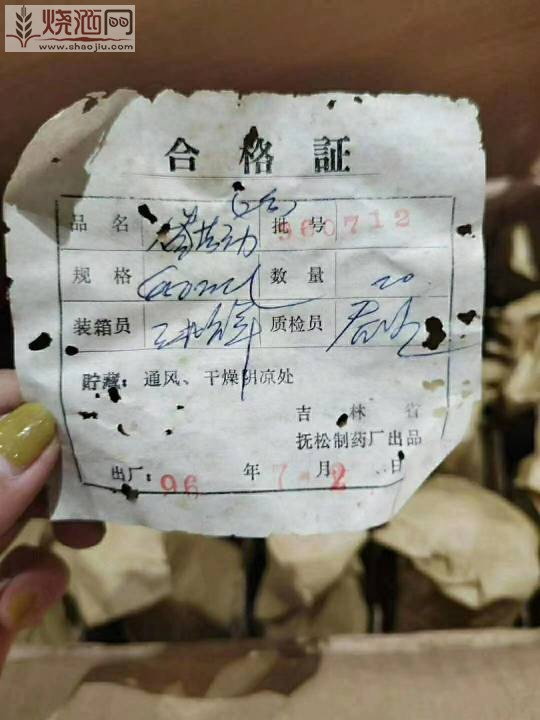 烧酒网
www.shaojiu.com
合格証
品名 批号 960712
规格 数量 20
装箱员 质检员
貯藏：通风、干燥阴凉处
吉林省
抚松制药厂出品
出厂：96年7月2日